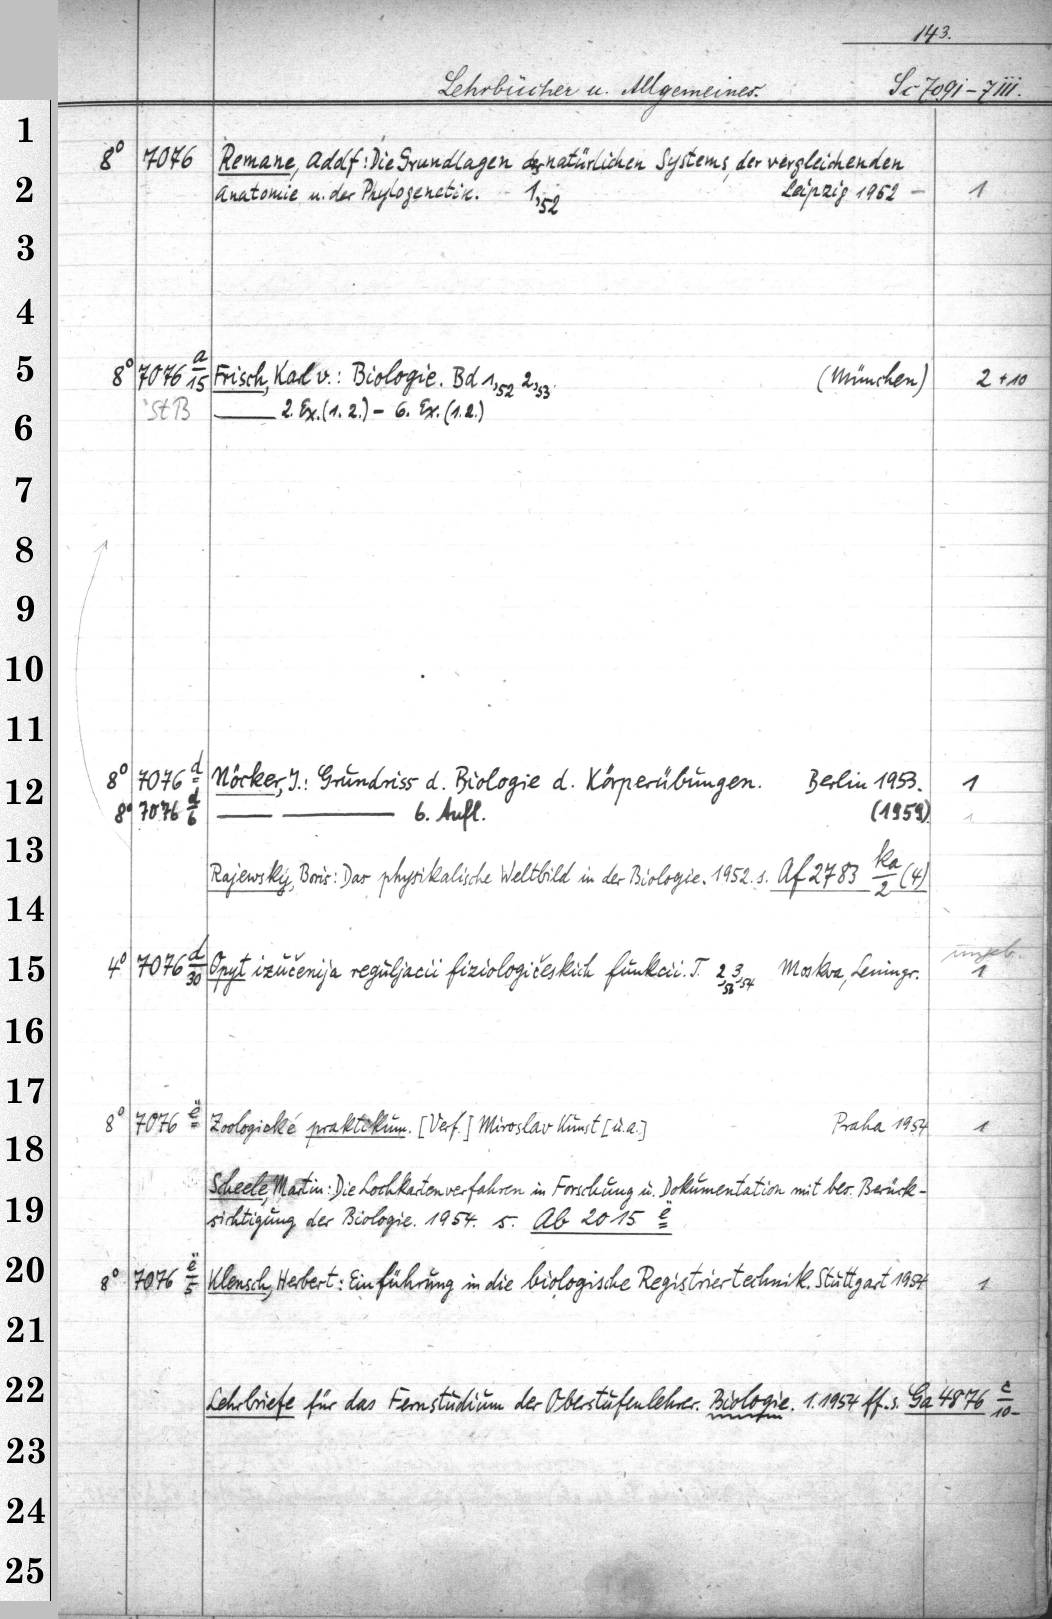 143.
Lehrbücher u. Allgemeines. Sc 7091-7111.
1
8° 7076 Remane, Adolf: Die Grundlagen des natürlichen Systems, der vergleichenden
2 Anatomie u. der Phylogenetik. 1,52 Leipzig 1952 - 1
3
4
5 8° 7076 a/15 Frisch, Karl v.: Biologie. Bd 1,52 2,53. (München) 2 + 10
StB ——— 2. Ex. (1. 2.) - 6. Ex. (1.2.)
6
7
8
9
10
11
8° 7076 d Nöcker, J.: Grundriss d. Biologie d. Körperübungen. Berlin 1953. 1
12
8° 7076 d/6 ——— ——— 6. Aufl. (1959) 1
13
Rajewsky, Boris: Das physikalische Weltbild in der Biologie. 1952. s. Af 2783 ka/2 (4)
14
ungeb.
15 4° 7076 d/30 Opyt izučenija reguljacii fiziologičeskich funkcii. T. 2,53 3,54 Moskva, Leningr. 1
16
17
8° 7076 ë Zoologické praktikum. [Verf.] Miroslav Kunst [u.a.] Praha 1954 1
18
Scheele, Martin: Die Lochkartenverfahren in Forschung u. Dokumentation mit bes. Berück-
19 sichtigung der Biologie. 1954. s. Ab 2015 ë
20 8° 7076 ë/5 Klensch, Herbert: Einführung in die biologische Registriertechnik. Stuttgart 1954 1
21
22 Lehrbriefe für das Fernstudium der Oberstufenlehrer. Biologie. 1.1954 ff. s. Ga 4876 c/10-
23
24
25